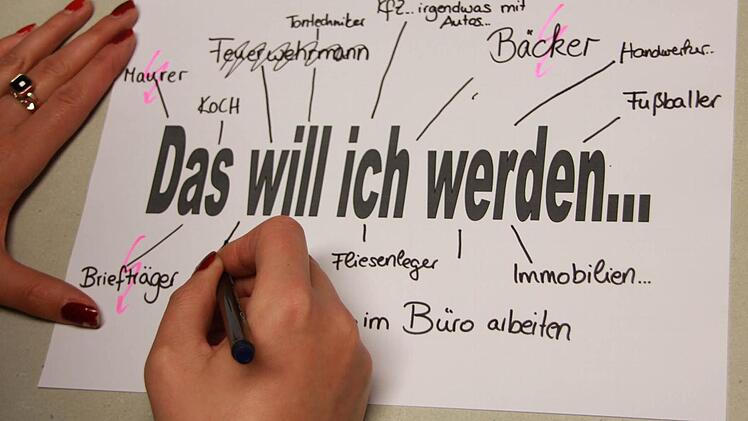 KfZ... irgendwas mit
Autos...
Tontechniker
Feuerwehrmann
Bäcker
Handwerker..
Maurer
KOCH
Fußballer
Das will ich werden...
Briefträger
Fliesenleger
Immobilien...
im Büro arbeiten